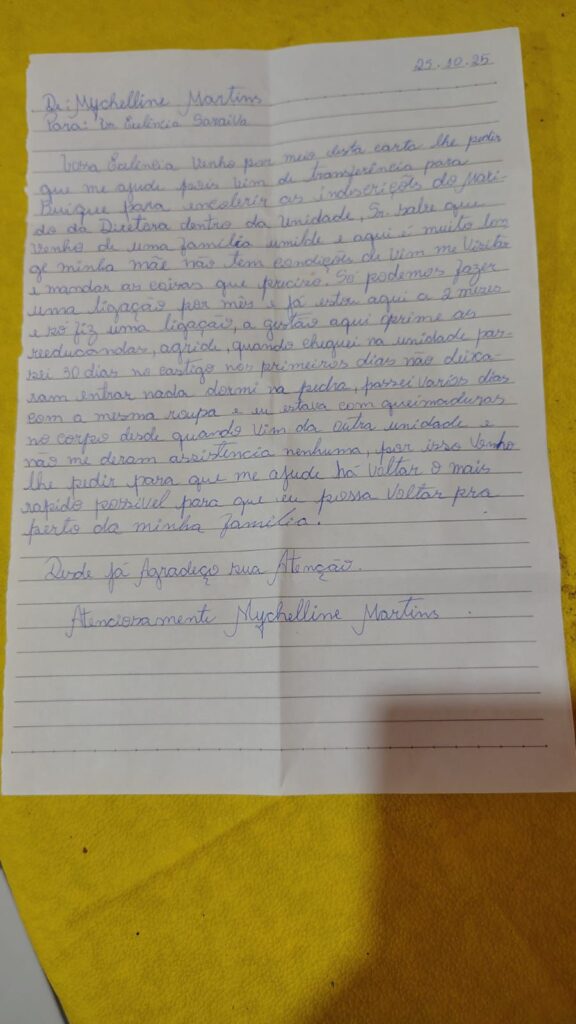 25.10.25
De: Mychelline Martins
Para: Vs Exelência Saraiva
Vossa Exelência venho por meio desta carta lhe pedir
que me ajude pois vim de transferência para
Buique para encoberir as indescrições do Mari-
do da Diretora dentro da Unidade, Sr. sabe que
venho de uma família umilde e aqui é muito lon
ge minha mãe não tem condições de vim me visitar
e mandar as coisas que preciso. Só podemos fazer
uma ligação por mês e já estou aqui a 2 meses
e só fiz uma ligação, a gestão aqui oprime as
reeducandas, agride, quando cheguei na unidade pas-
sei 30 dias no castigo nos primeiros dias não deixa-
ram entrar nada dormi na pedra, passei vários dias
com a mesma roupa e eu estava com queimaduras
no corpo desde quando vim da outra unidade e
não me deram assistência nenhuma, por isso venho
lhe pedir para que me ajude há voltar o mais
rapido possivel para que eu possa voltar pra
perto da minha família.
Desde já Agradeço sua Atenção.
Atenciosamente Mychelline Martins.